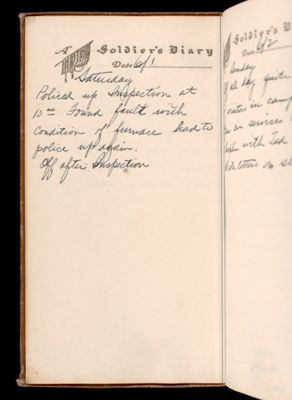 A Soldier's Diary
Date 6/1
Saturday
Policed up Inspection at
10 00 Found fault with
condition of furnace had to
police up again.
Off after Inspection
Soldier's D
Date 6/2
Sunday
all day quite
visitors in camp
in services
with Ted
letters on